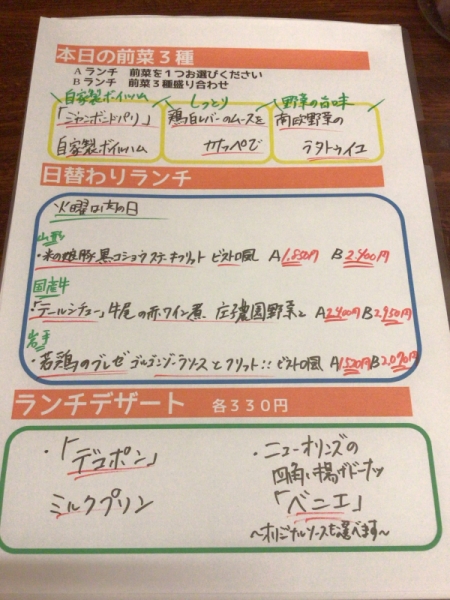 本日の前菜3種
Aランチ 前菜を1つお選びください
Bランチ 前菜3種盛り合わせ
自家製ボイルハム しっとり 野菜の旨味
「ジャンボンドパリ」 鶏白レバーのムースを 南欧野菜の
自家製ボイルハム カナッペで ラタトゥイユ
日替わりランチ
火曜は肉の日
山形
・米の娘豚 黒コショウステーキフリット ビストロ風 A1,850円 B2,400円
国産牛
・「テールシチュー」牛尾の赤ワイン煮 庄子農園野菜と A2,400円 B2,950円
岩手
・若鶏のブレゼ ゴルゴンゾーラソースとフリット!! ビストロ風 A1,520円 B2,070円
ランチデザート 各330円
・「デコポン」
ミルクプリン
・ニューオリンズの
四角い揚げドーナッツ
「ベニエ」
～オリジナルソースを選べます～